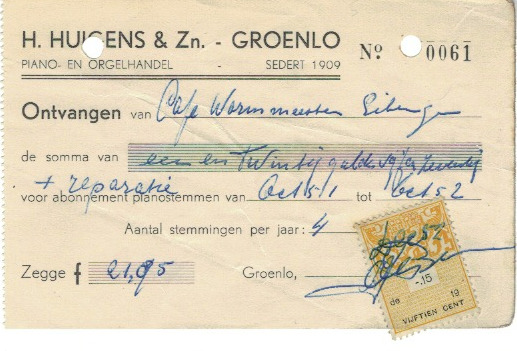 H. HUIGENS & Zn. - GROENLO
PIANO- EN ORGELHANDEL - SEDERT 1909
No. 0061
Ontvangen van Café Wormmeester Eibergen
de somma van een en Twintig gulden
+ reparatie
voor abonnement pianostemmen van Oct 51 tot Oct 52
Aantal stemmingen per jaar: 4
Zegge f 21,95
Groenlo,
-.15
de 19
VIJFTIEN CENT